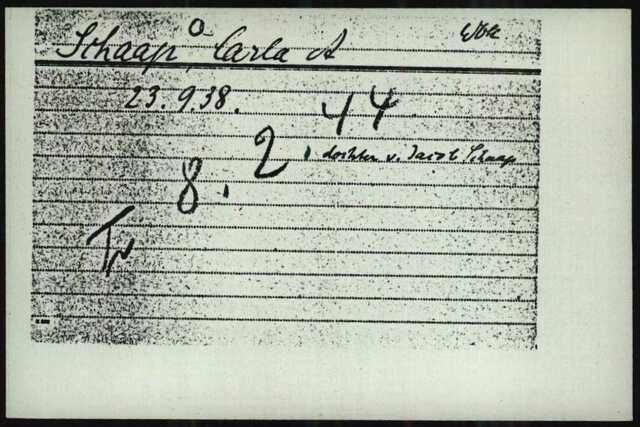 Schaap, Carla A
23.9.38.
8. 2. 44
dochter v. Jacob Schaap